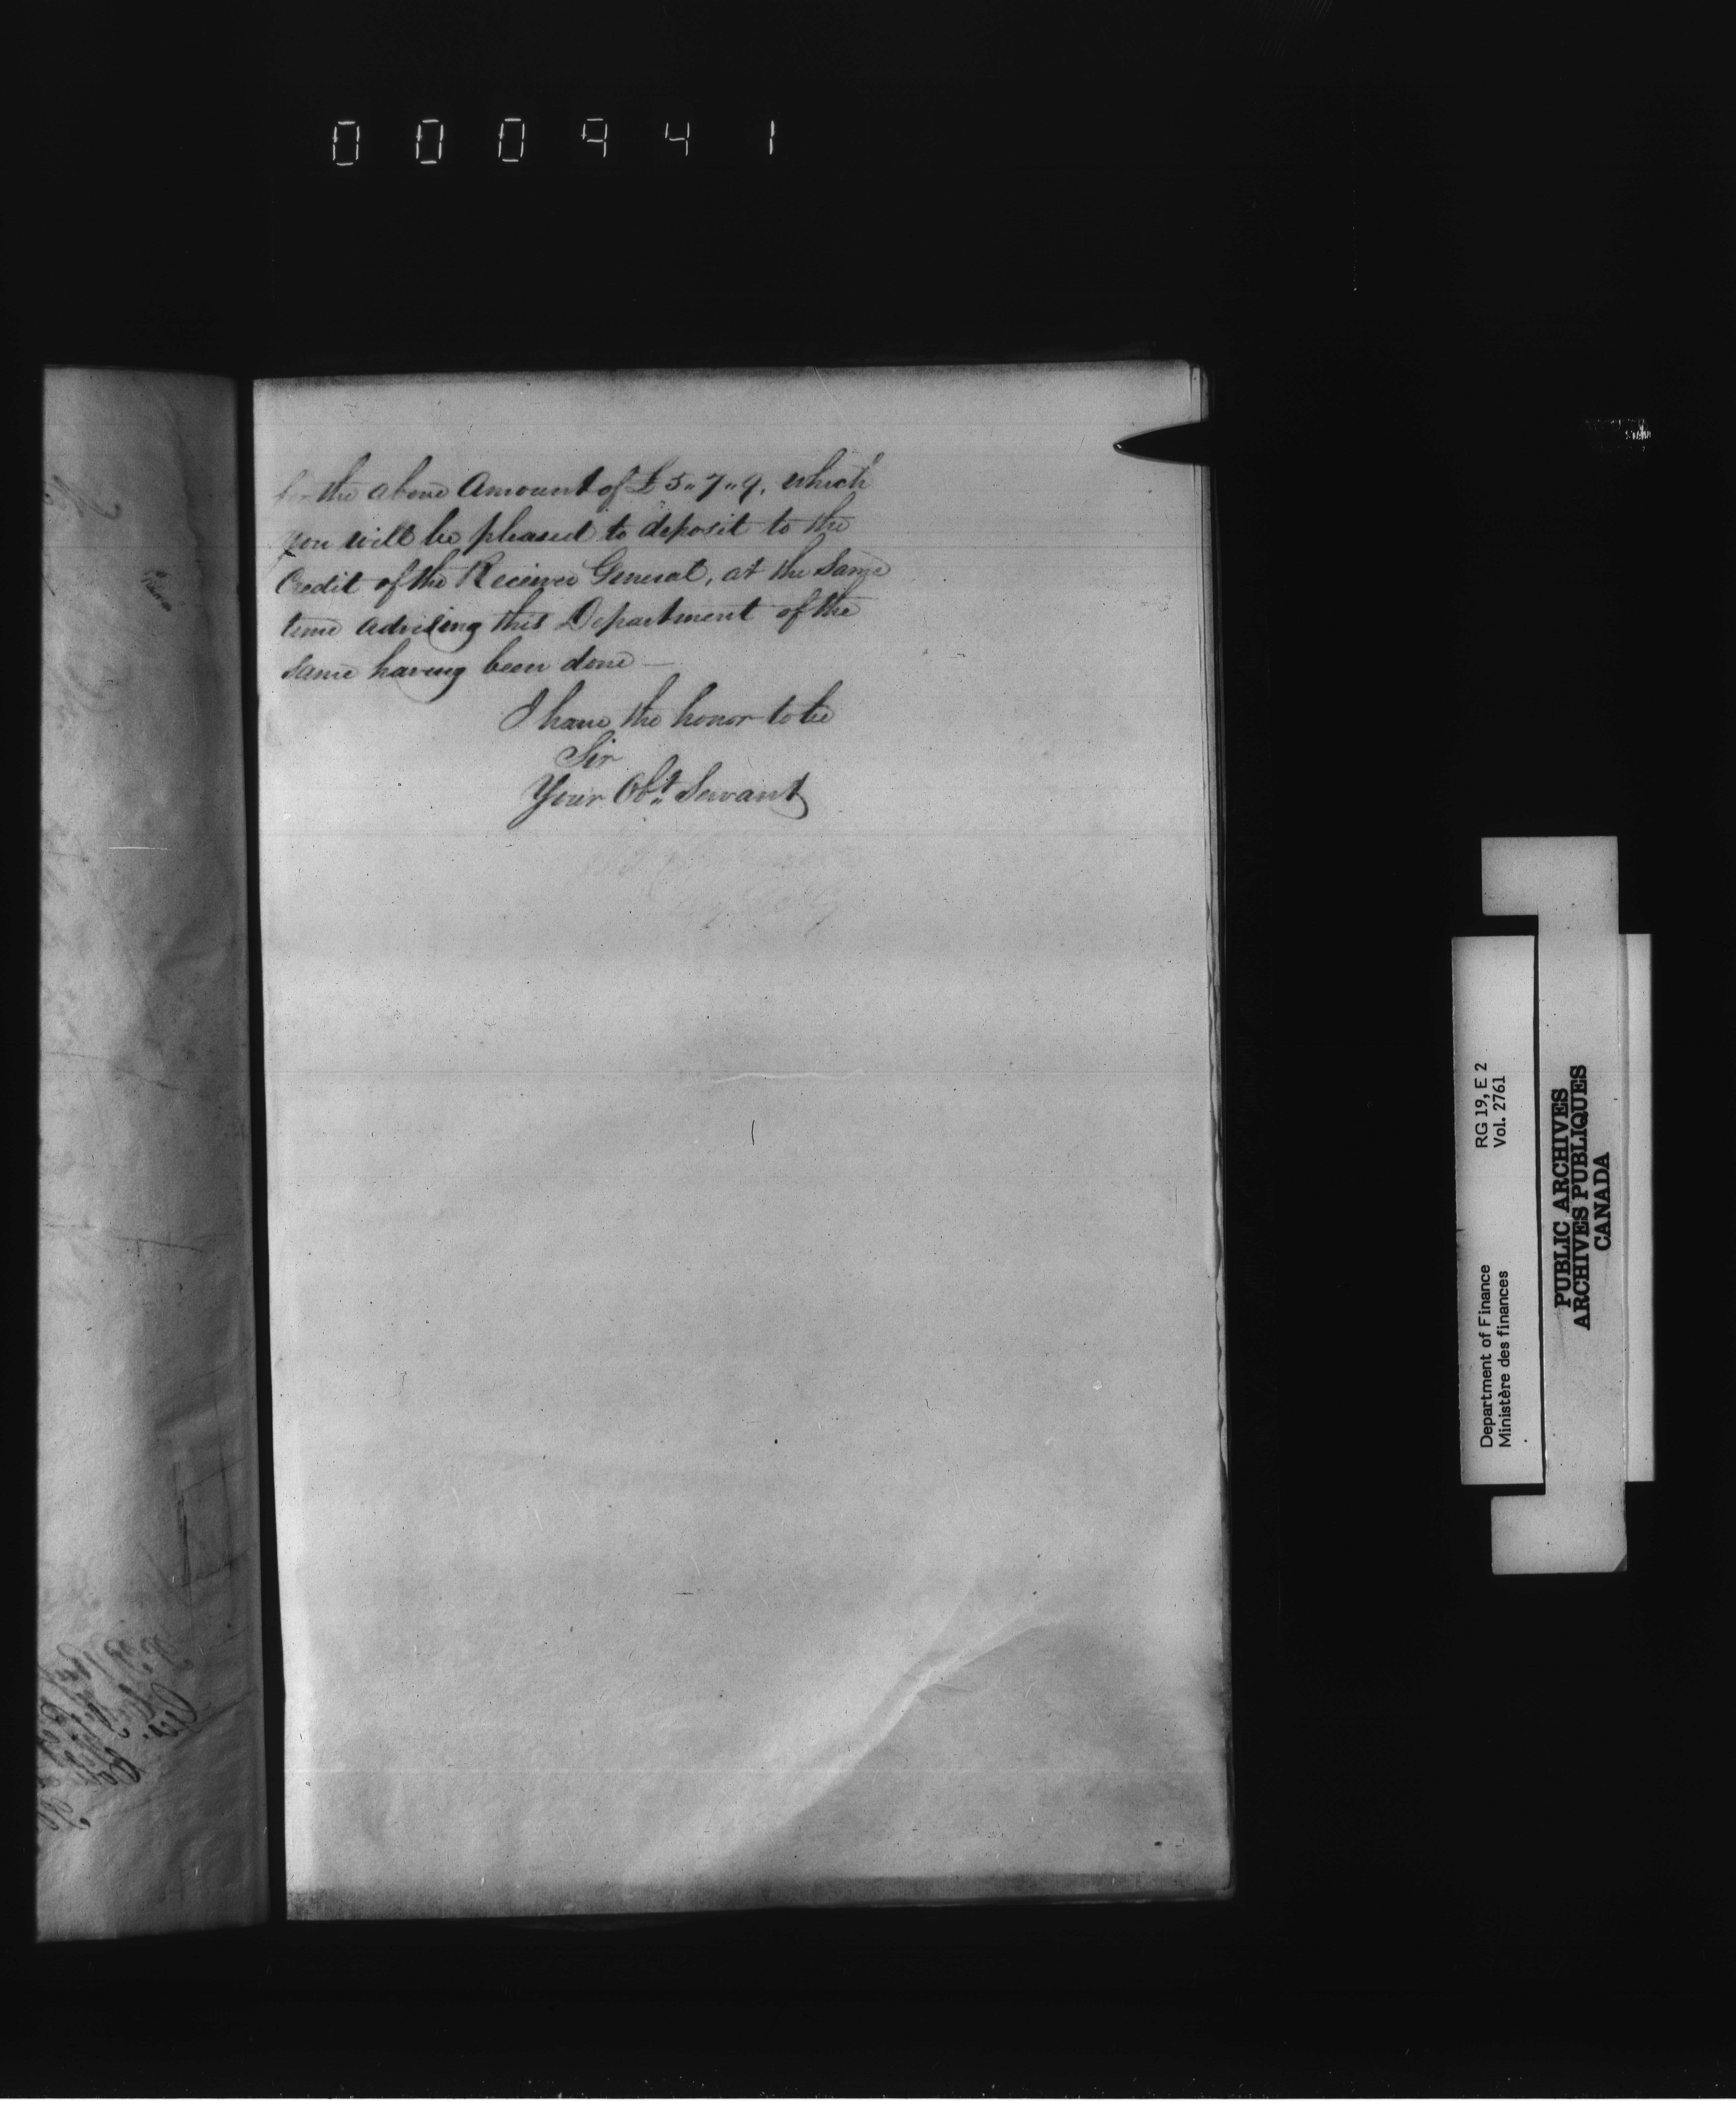 000941
for the above Amount of £5〃7〃9, which
you will be pleased to deposit to the
Credit of the Receiver General, at the Same
time advising this Department of the
same having been done —
I have the honor to be
Sir
Your Obt〃 Servant
Department of Finance RG 19, E 2
Ministère des finances Vol. 2761
PUBLIC ARCHIVES
ARCHIVES PUBLIQUES
CANADA